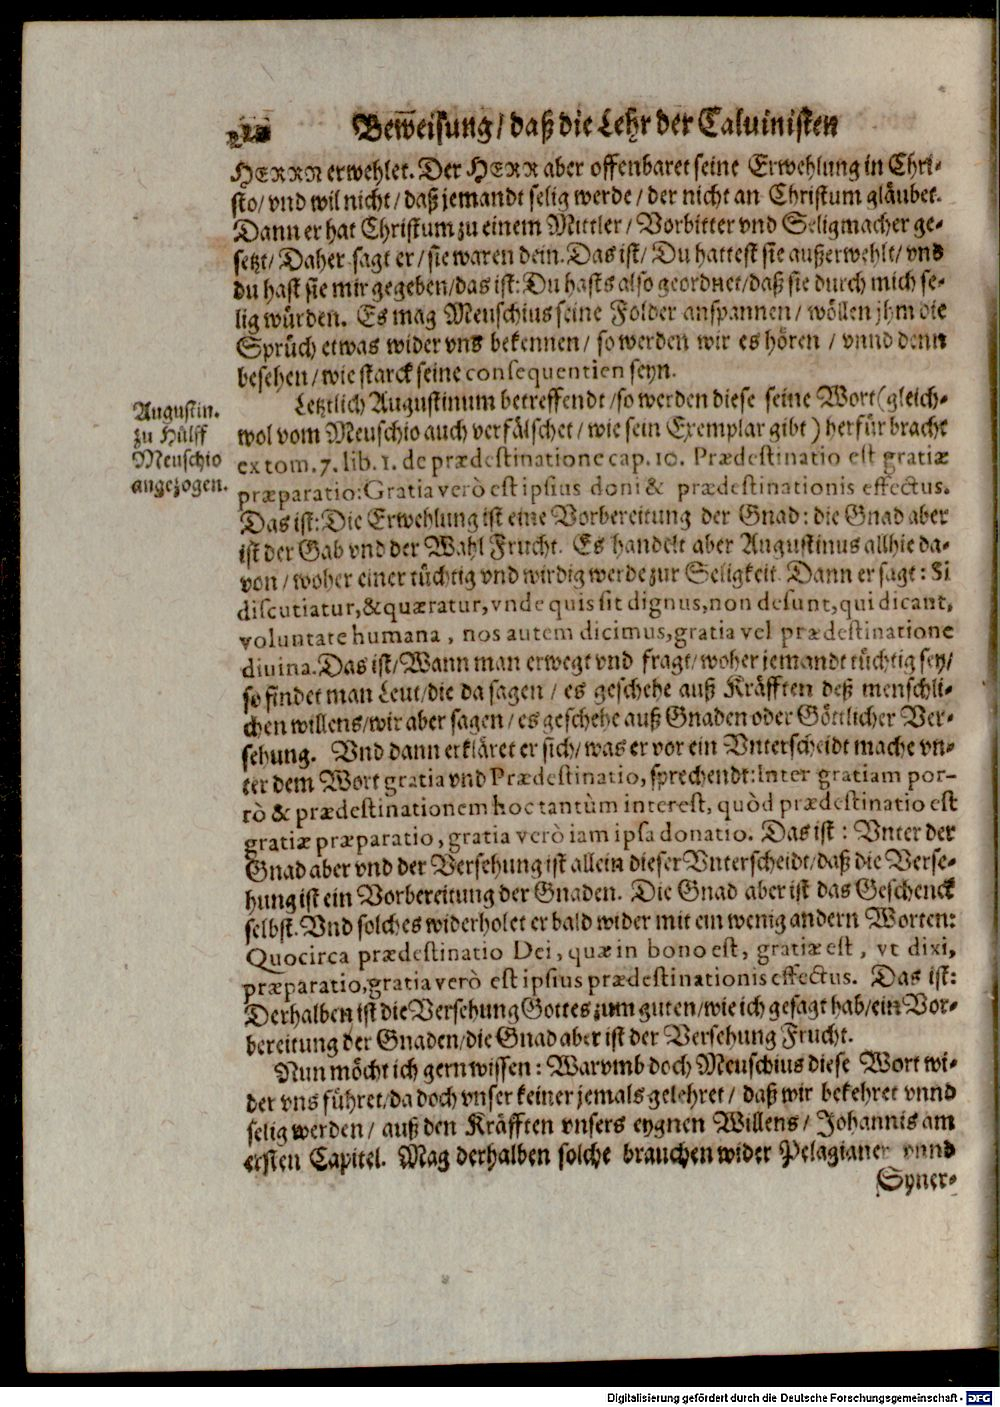 Beweisung / daß die Lehr der Caluinisten
HERRN erwehlet. Der HERR aber offenbaret seine Erwehlung in Chri-
sto / vnd wil nicht / daß jemandt selig werde / der nicht an Christum gläubet.
Dann er hat Christum zu einem Mittler / Vorbitter vnd Seligmacher ge-
setzt / Daher sagt er / sie waren dein. Das ist / Du hattest sie außerwehlt / vnd
du hast sie mir gegeben / das ist: Du hasts also geordnet / daß sie durch mich se-
lig würden. Es mag Meuschius seine Folder anspannen / wöllen jhm die
Sprüch etwas wider vns bekennen / so werden wir es hören / vnnd denn
besehen / wie starck seine consequentien seyn.
Augustin.
zu Hülff
Meuschio
angezogen.
Letztlich Augustinum betreffendt / so werden diese seine Wort (gleich-
wol vom Meuschio auch verfälschet / wie sein Exemplar gibt) herfür bracht
ex tom. 7. lib. 1. de prædestinatione cap. 10. Prædestinatio est gratiæ
præparatio: Gratia verò est ipsius doni & prædestinationis effectus.
Das ist: Die Erwehlung ist eine Vorbereitung der Gnad: die Gnad aber
ist der Gab vnd der Wahl Frucht. Es handelt aber Augustinus allhie da-
von / woher einer tüchtig vnd wirdig werde zur Seligkeit. Dann er sagt: Si
discutiatur, & quæratur, vnde quis sit dignus, non desunt, qui dicant,
voluntate humana, nos autem dicimus, gratia vel prædestinatione
diuina. Das ist / Wann man erwegt vnd fragt / woher jemandt tüchtig sey /
so findet man Leut / die da sagen / es geschehe auß Kräfften deß menschli-
chen willens / wir aber sagen / es geschehe auß Gnaden oder Göttlicher Ver-
sehung. Vnd dann erkläret er sich / was er vor ein Vnterscheidt mache vn-
ter dem Wort gratia vnd Prædestinatio, sprechendt: Inter gratiam por-
rò & prædestinationem hoc tantùm interest, quòd prædestinatio est
gratiæ præparatio, gratia verò iam ipsa donatio. Das ist: Vnter der
Gnad aber vnd der Versehung ist allein dieser Vnterscheidt / daß die Verse-
hung ist ein Vorbereitung der Gnaden. Die Gnad aber ist das Geschenck
selbst. Vnd solches widerholet er bald wider mit ein wenig andern Worten:
Quocirca prædestinatio Dei, quæ in bono est, gratiæ est, vt dixi,
præparatio, gratia verò est ipsius prædestinationis effectus. Das ist:
Derhalben ist die Versehung Gottes zum guten / wie ich gesagt hab / ein Vor-
bereitung der Gnaden / die Gnad aber ist der Versehung Frucht.
Nun möcht ich gern wissen: Warvmb doch Meuschius diese Wort wi-
der vns führet / da doch vnser keiner jemals gelehret / daß wir bekehret vnnd
selig werden / auß den Kräfften vnsers eygnen Willens / Johannis am
ersten Capitel. Mag derhalben solche brauchen wider Pelagianer vnnd
Syner-
Digitalisierung gefördert durch die Deutsche Forschungsgemeinschaft - DFG